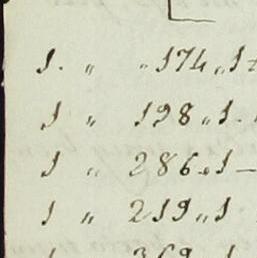 1. " " 174 " 1
1 " 198 " 1.
1 " 286 " 1 —
1 " 219 " 1